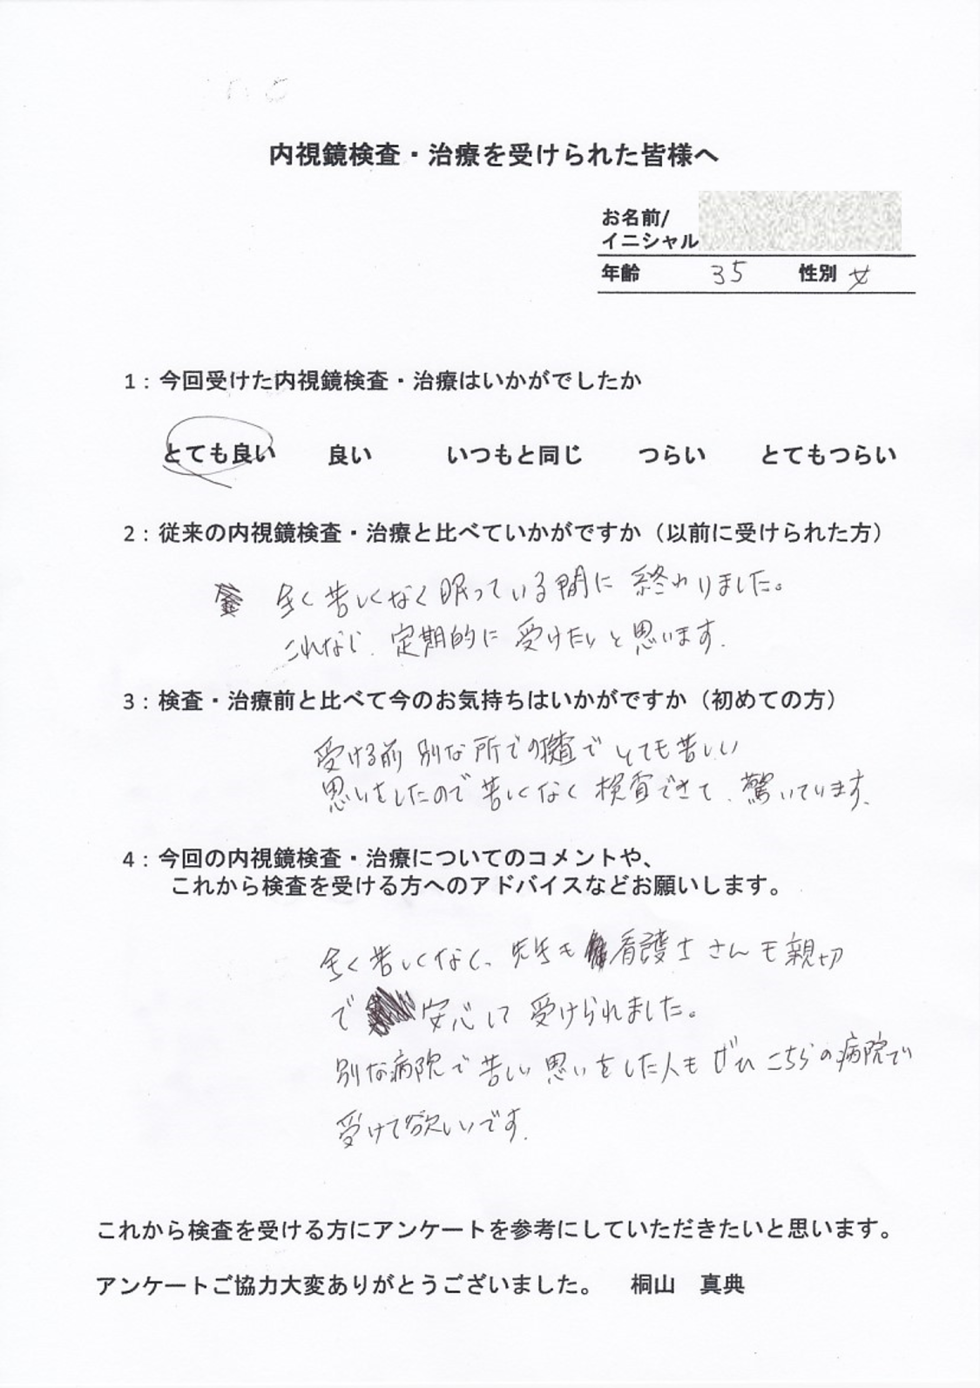 内視鏡検査・治療を受けられた皆様へ
お名前/
イニシャル
年齢 35 性別 女
1：今回受けた内視鏡検査・治療はいかがでしたか
とても良い 良い いつもと同じ つらい とてもつらい
2：従来の内視鏡検査・治療と比べていかがですか（以前に受けられた方）
全く苦しくなく眠っている間に終わりました。
これなら、定期的に受けたいと思います。
3：検査・治療前と比べて今のお気持ちはいかがですか（初めての方）
受ける前別な所での検査でとても苦しい
思いをしたので苦しくなく検査できて、驚いています。
4：今回の内視鏡検査・治療についてのコメントや、
これから検査を受ける方へのアドバイスなどお願いします。
全く苦しくなく、先生も看護士さんも親切
で安心して受けられました。
別な病院で苦しい思いをした人もぜひこちらの病院で
受けて欲しいです。
これから検査を受ける方にアンケートを参考にしていただきたいと思います。
アンケートご協力大変ありがとうございました。 桐山 真典